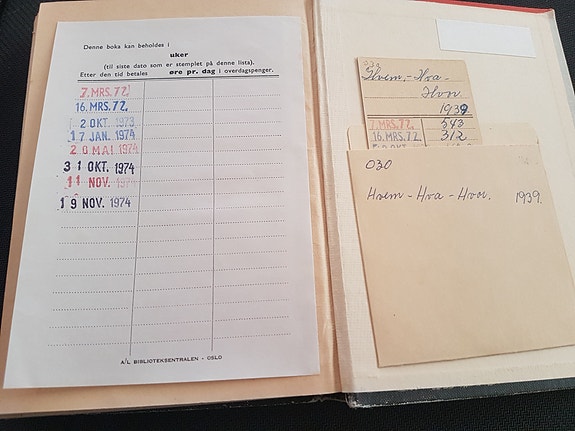 Denne boka kan beholdes i
uker
(til siste dato som er stemplet på denne lista).
Etter den tid betales øre pr. dag i overdagspenger.
7. MRS. 72.
16. MRS. 72.
2 OKT. 1973
17 JAN. 1974
20 MAI 1974
31 OKT. 1974
11 NOV.
19 NOV. 1974
A/L BIBLIOTEKSENTRALEN - OSLO
030
Hvem-Hva-
Hvor
1939
7. MRS. 72. 543
16. MRS. 72. 312
030
Hvem - Hva - Hvor. 1939.